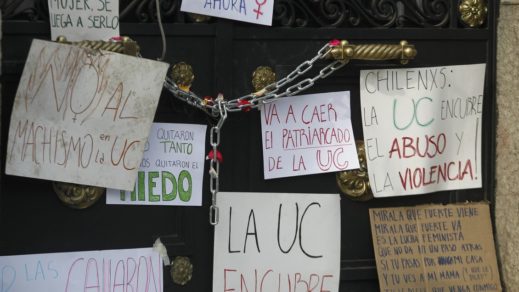 MUJER, SE
LLEGA A SERLO
AHORA ♀
NO AL
MACHISMO en
la UC
QUITARON
TANTO
NOS QUITARON EL
MIEDO
VA A CAER
El PATRIARCADO
DE LA UC
CHILENXS:
LA UC ENCUBRE
EL ABUSO Y
LA VIOLENCIA!
LA UC
ENCUBRE
MIRALA QUE FUERTE VIENE
MIRALA QUE FUERTE VA
ES LA LUCHA FEMINISTA
QUE NO DA NI UN PASO ATRAS
SI TU PASAS POR MI CASA
Y TU VES A MI MAMÁ
LAS CALLARON